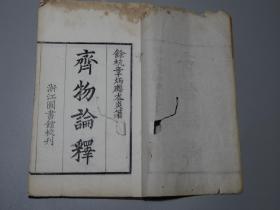 餘杭章炳麟太炎箸
齊物論釋
浙江圖書館校刊